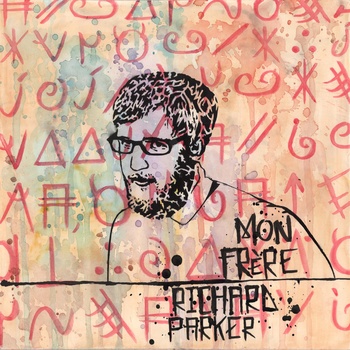 MON
FRÈRE
RICHARD
PARKER